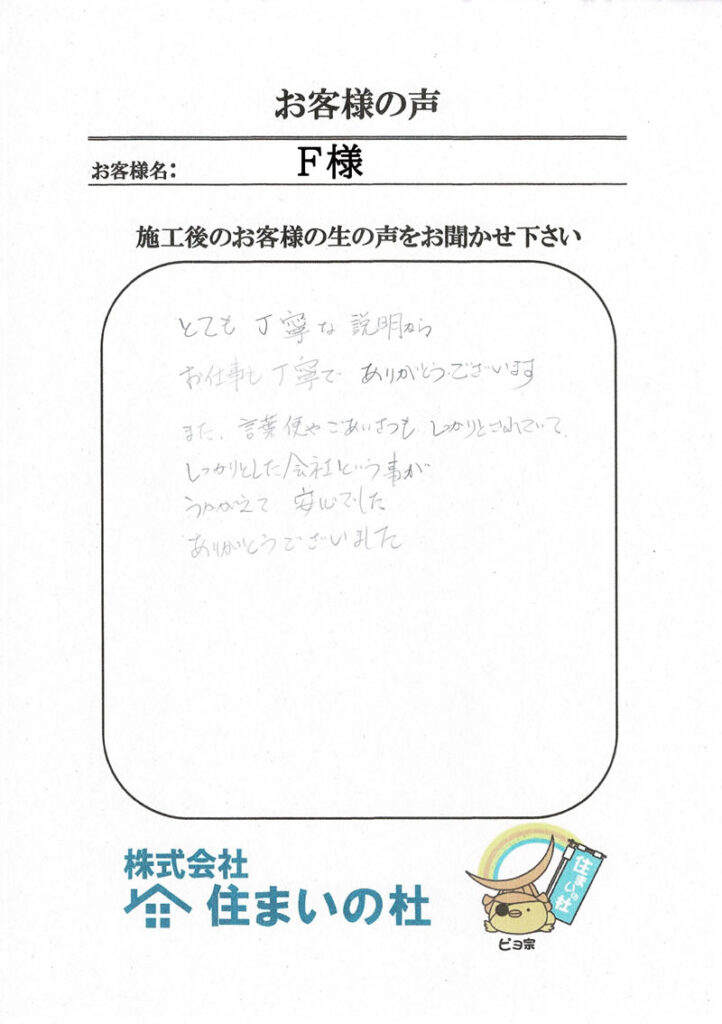 お客様の声
お客様名: F様
施工後のお客様の生の声をお聞かせ下さい
とても丁寧な説明から
お仕事も丁寧で ありがとうございます
また、言葉使やごあいさつも しっかりとされていて、
しっかりとした会社という事が
うかがえて 安心でした
ありがとうございました
株式会社
住まいの杜
住まいの杜
ピヨ宗